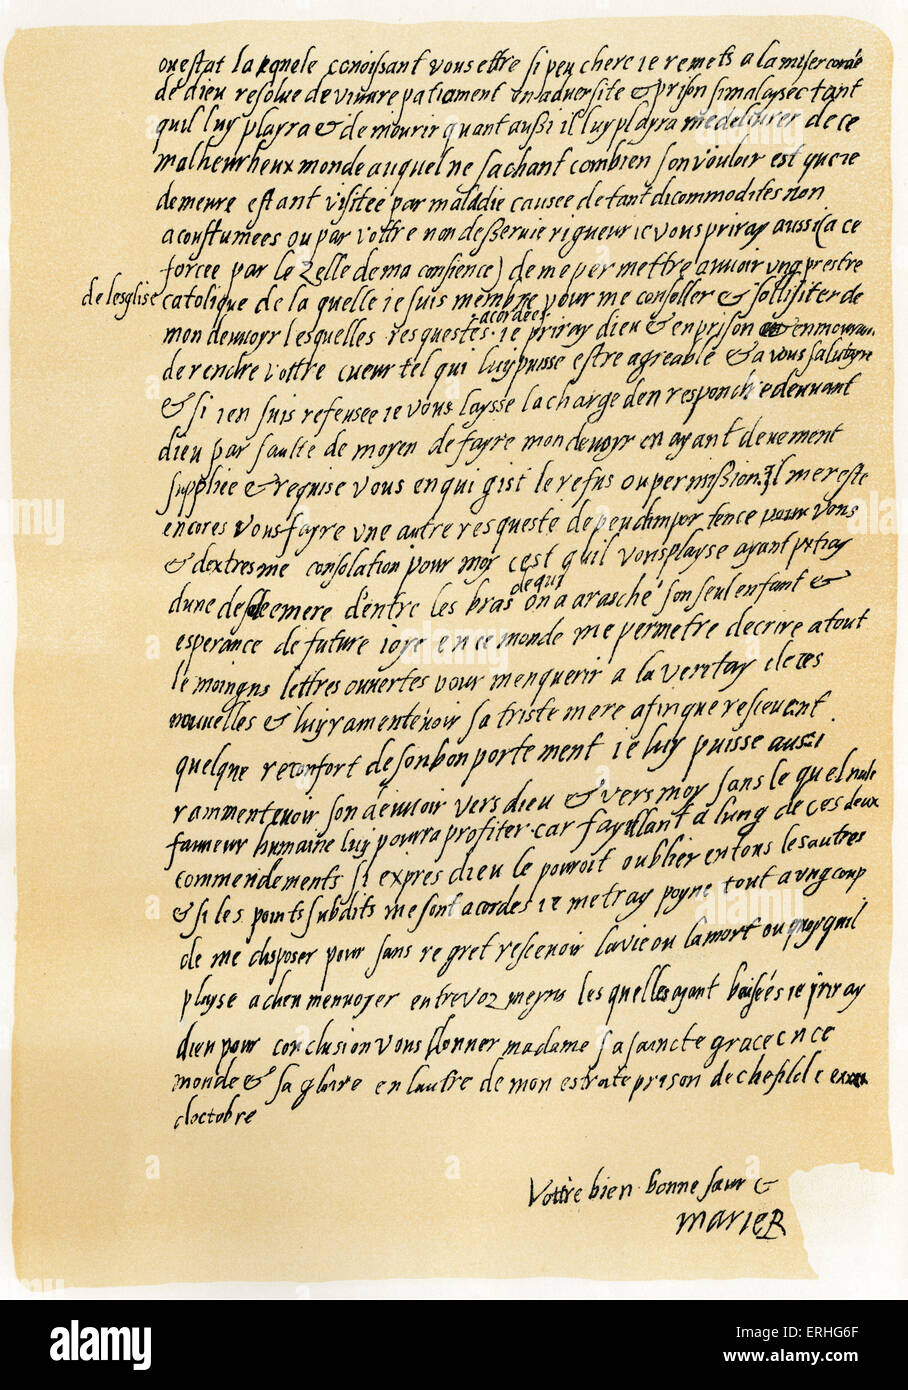 ou estat la quele conoissant vous estre si peu chere ie remets a la misercorde
de dieu resolue de vivvre patiament en adversite & prison si malaysee tant
quil luy playra & de mourir quant aussi il luy playra me delivrer de ce
malheurheux monde auquel ne sachant combien son vouloir est que ie
demeure estant visitee par maladie causee de tant dicommodites non
acoustumees ou par vottre non desservie rigueur ie vous priray aussi (a ce
forcee par le zelle de ma consience) de me permettre avvoir ung prestre
de lesglise catolique de la quelle ie suis membre pour me conseller & sollisiter de
mon devvoyr lesquelles resquestes acordees ie priray dieu & en prison & en mourant
de rendre vottre cueur tel qui luy puisse estre agreable & a vous salutayre
& si ien suis refeusee ie vous laysse la charge den respondre devvant
dieu par faulte de moyen de fayre mon devvoyr en ayant devement
suppliee & requise vous en qui gist le refus ou permission. Il me reste
encores vous fayre une autre resqueste de peu dimportence pour vous
& dextresme consolation pour moy cest quil vous playse ayant pitay
dune desolee mere dentre les bras de qui on a arasche son seul enfant &
esperance de future ioye en ce monde me permetre decrire a tout
le moingns lettres ouvertes pour menquerir a la veritay de ces
nouvelles & luy ramentevoir sa triste mere afin que rescevent
quelque reconfort de son bon portement ie luy puisse aussi
rammentevoir son devvoir vers dieu & vers moy sans le quel nule
faveur humaine luy pourra profiter car fayllant a lung de ces deux
commendements si expres dieu le pourroit oublier en tous les autres
& si les points subdits me sont acordes ie metray poyne tout a ung coup
de me disposer pour sans regret rescevoir la vie ou la mort ou quoy quil
playse a dieu menvoyer entre voz meyns les quelles ayant baisées ie priray
dieu pour conclusion vous donner madame sa saincte grace en ce
monde & sa gloire en lautre de mon estroite prison de chefild le
doctobre
Vottre bien bonne sœur &
MARIE R
alamy
a
alamy stock photo
ERHG6F
www.alamy.com